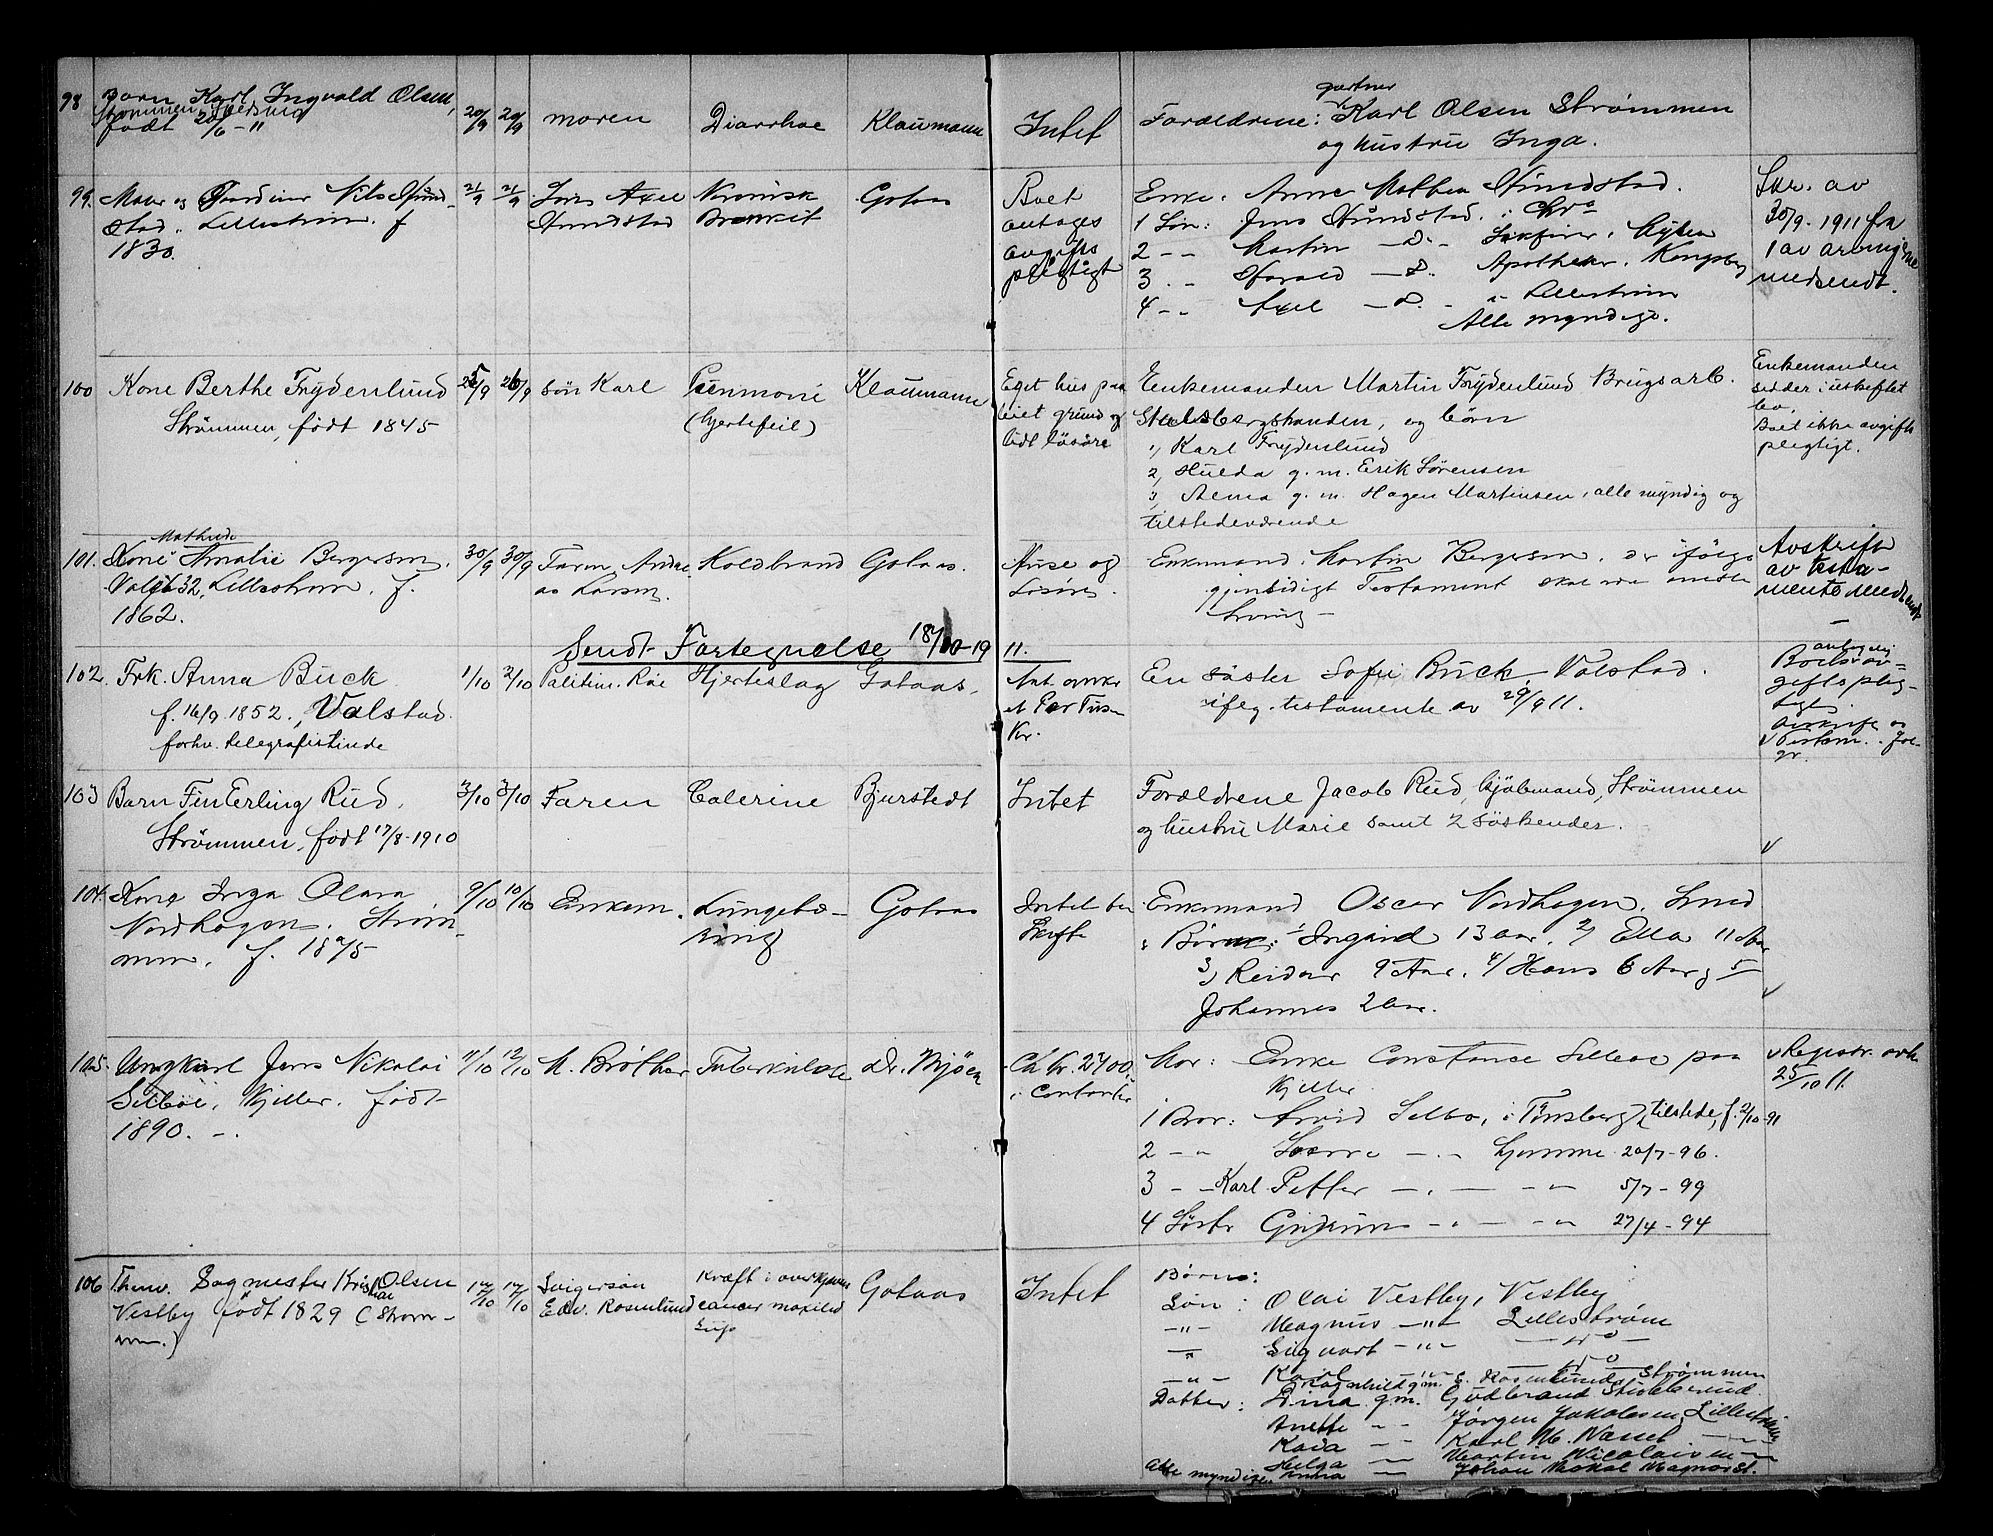 98 Barn Karl Ingvald Olsen,
Strømmen
født 20/6-11
20/9 20/9 moren Diarrhoe Klaumann Intet
gartner
Forældrene: Karl Olsen Strømmen
og hustru Inga.
99. Maur og Gardiner Nils
stad. Lillestrøm. f
1830.
21/9 21/9 Søn Axel
Kronisk
Bronkit
Gotaas
Boet
antages
avgifts
pligtigt
Enke. Anne Mathea
1 Søn: Jens i Chra
2 - - Martin - d -
3 - - Harald - d - Apotheker, Kongsberg
4 - - Axel - d - Lillestrøm
Alle myndige.
Skr. av
30/9-1911 fra
1 av arvingerne
medsendt.
100 Kone Berthe Frydenlund
Strømmen, født 1845
25/9 26/9 søn Karl Penmoni
(hjertefeil)
Klaumann
Eget hus paa
leiet grund og
lidt løsøre
Enkemanden Martin Frydenlund Brugsarb.
Stalsbergshanden, og børn
1, Karl Frydenlund
2, Hulda g. m. Erik Sørensen
3, Alma g. m. Hagen Martinsen, alle myndig og
tilstedeværende
Enkemanden
sidder i uskiftet
bo.
Boet ikke avgifts
pligtigt.
101. Kone Mathilde Amalie Bergersen.
Volgt 32, Lillestrøm. f.
1862.
30/9 30/9 Faren Andre
as Larsen.
Koldbrand Gotaas.
Huse og
Løsøre.
Enkemand. Martin Bergersen. der ifølge
gjensidigt Testament skal være eneste
Arving -
Avskrift
av testa-
mente medsendt
Sendt Fortegnelse 18/10-1911.
102. Frk. Anna Buck
f. 16/9 1852., Valstad.
forhv. telegrafistinde
1/10 2/10 Politim. Roe Hjerteslag Gotaas.
Ant. omkr
et Par Tusen
Kr.
En søster Sofie Buck, Valstad.
ifølg. testamente av 29/9 11.
antagelig
Boet av-
giftsplig-
tigt.
Avskrift av
Testam.
103 Barn Fin Erling Rud.
Strømmen, født 17/8-1910
3/10 3/10 Faren Colerine Bjurstedt Intet
Forældrene Jacob Rud, kjøbmand, Strømmen
og hustru Marie samt 2 søskender.
104. Kone Inga Olava
Nordhagen. Strøm-
men. f. 1875
9/10 10/10 Enkem. Lungebe-
Gotaas
Intet ber
Skifte
Enkemand Oscar Nordhagen. Smed
Børn: 1 Ingrid 13 aar, 2/ Ella 11 Aar
3) Reidar 9 Aar. 4/ Hans 6 Aar, 5
Johannes 2 aar.
105. Ungkarl Jens Nikolai
Selboe, Kjeller. født
1890. -.
11/10 12/10 M. Brøther Tuberkulose Dr. Mjøen
Ca kr. 2400.
i Contanter
Mor: Enke Constance Selboe paa
Kjeller.
1 Bror: Arvid Selbo, i Tønsberg, tilstede, f. 2/10-91
2 - - hjemme 20/7-96.
3 - - Karl Petter - - - 5/7-99
4 Søster Gudrun - - - 27/4-94
Registr. avh
25/10 11.
106 Fhenv. Sagmester Kristian Olsen
Vestby født 1829 (Strøm-
men.)
17/10 17/10 Svigersøn
Edv. Rosenlund
Kræft i overkjæven
cancer maxiled
sup
Gotaas Intet
Børn:
Søn: Olai Vestby, Vestby
-"- Magnus -"- Lillestrøm
-"- Sigvart -"- -"-
-"- Karl -"-
Ragnhild gm. E. Rosenlund, Strømmen
Datter: Dina gm. Gudbrand Stubberud.
Anette - - Jørgen Jakobsen, Lillestrøm
Kaia - - Karl M. Nassel - -
Helga - - Martin Nicolaisen
Alle myndige. Anna - - Johan